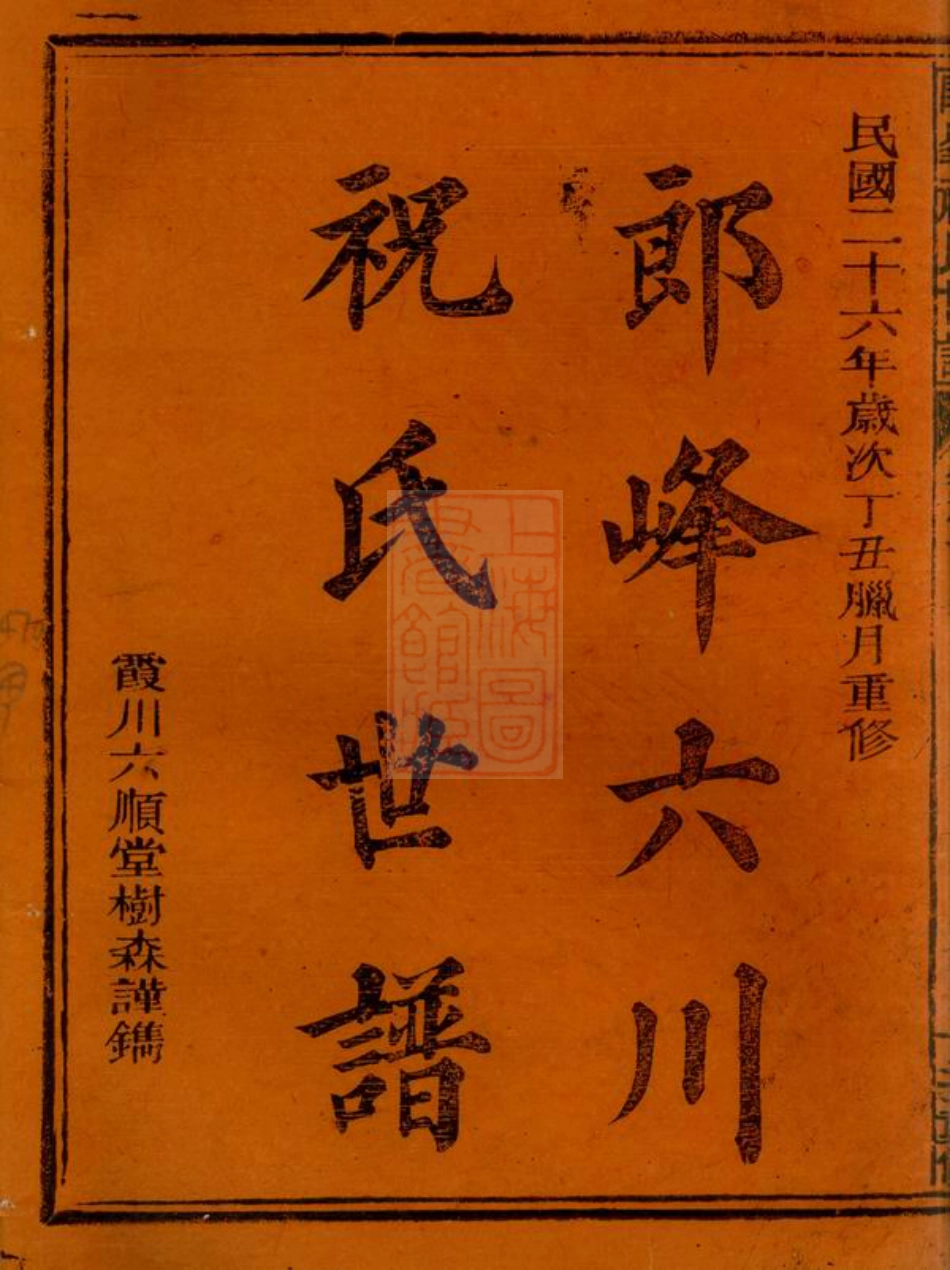 民國二十六年歲次丁丑臘月重修
郎峰六川
祝氏世譜
霞川六順堂樹森謹鐫
上海圖
書館藏